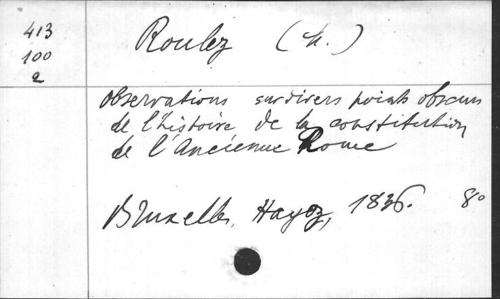 413
100
2
Roulez (h.)
Observations sur divers points obscurs
de l'histoire de la constitution
de l'Ancienne Rome
Bruxelles, Hayez, 1836. 8°